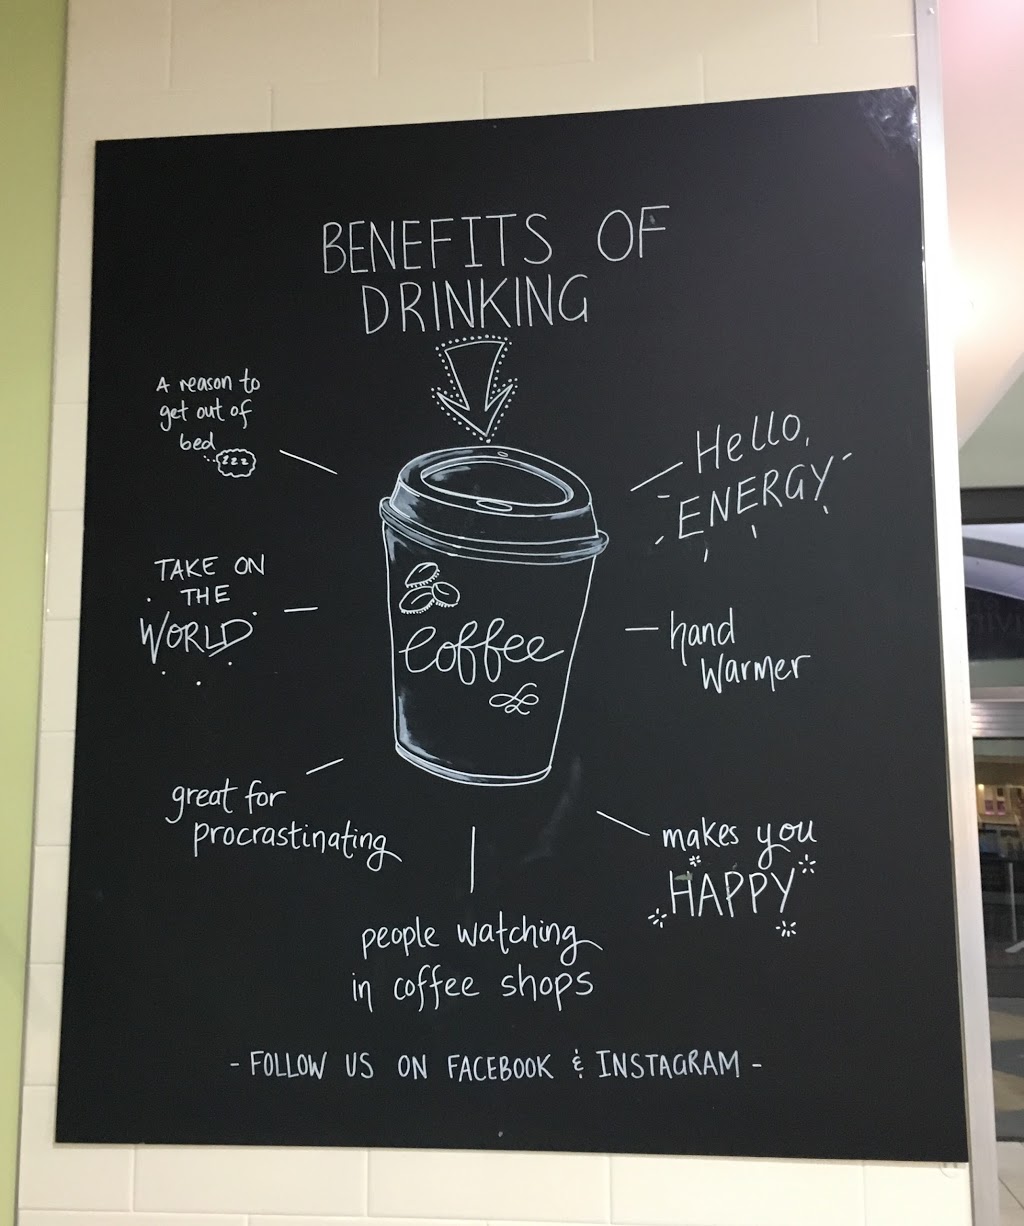 BENEFITS OF
DRINKING
A reason to
get out of
bed
zzz
Hello,
ENERGY
TAKE ON
THE
WORLD
coffee
hand
warmer
great for
procrastinating
makes you
HAPPY
people watching
in coffee shops
- FOLLOW US ON FACEBOOK & INSTAGRAM -